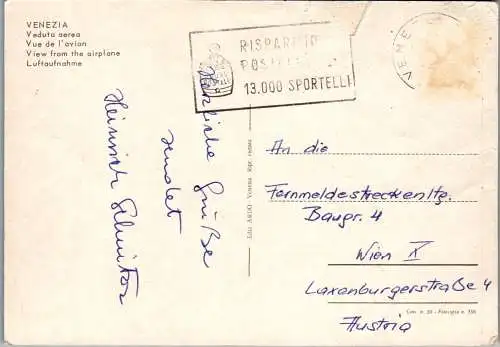 VENEZIA
Veduta aerea
Vue de l'avion
View from the airplane
Luftaufnahme
RISPARMIO
POSTALE
13.000 SPORTELLI
VENEZ
Herzliche Grüße
sendet
Heinrich
Ediz. ARDO Venezia Ripr. vietata
An die
Fernmeldestreckenltg.
Baugr. 4
Wien X
Laxenburgerstraße 4
Austria